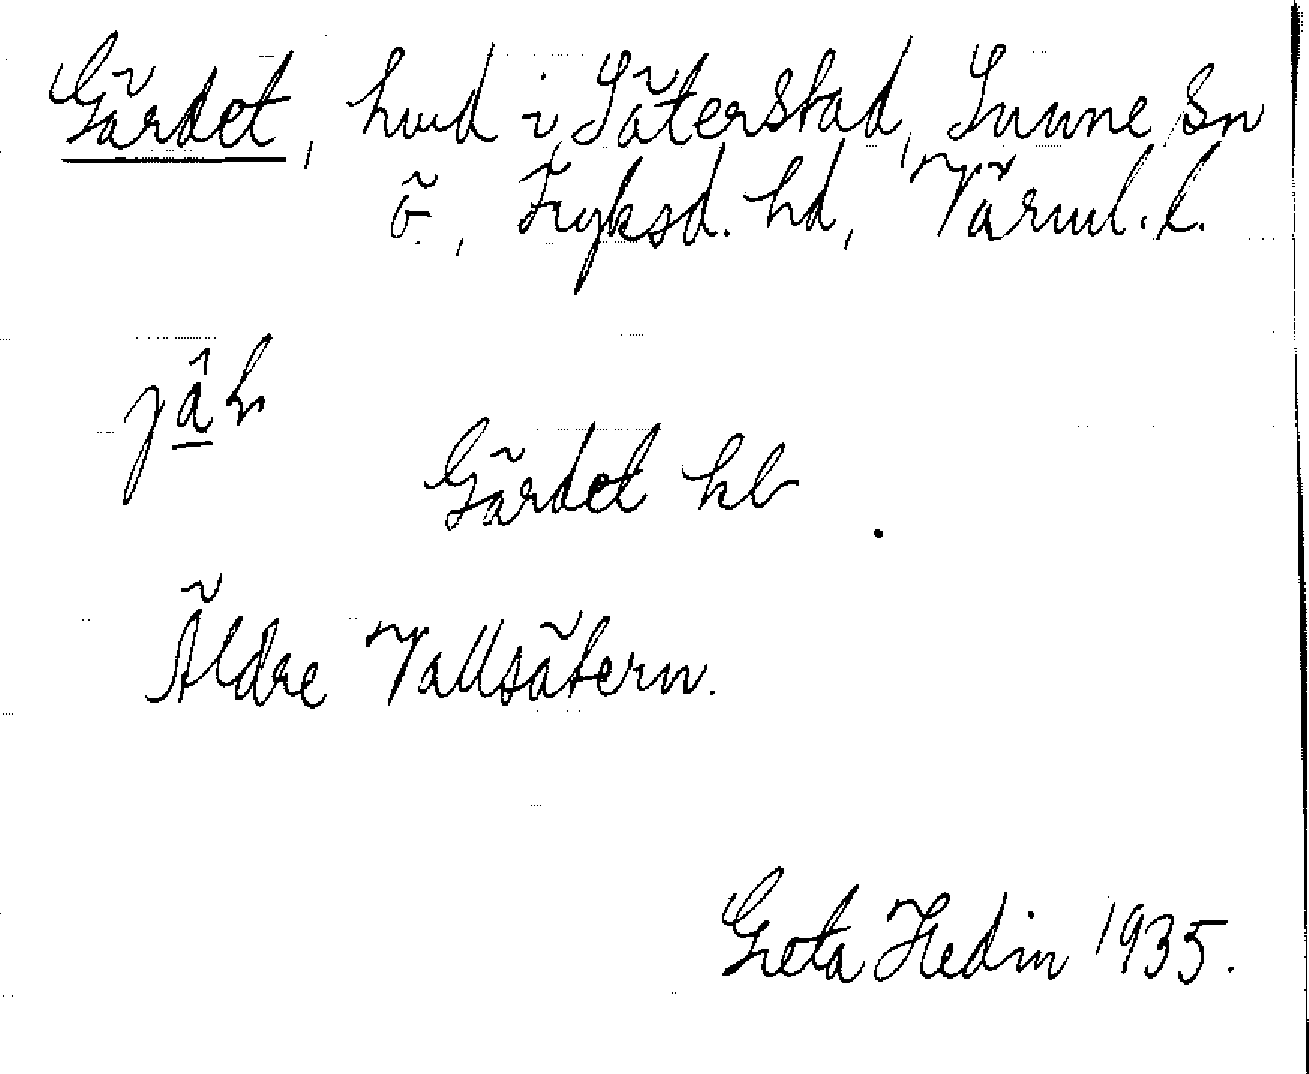 Gärdet, hmd i Säterstad, Sunne sn
ö., Fryksd. hd, Värml. l.
Gärdet kb
Äldre Vallsätern.
Greta Hedin 1935.